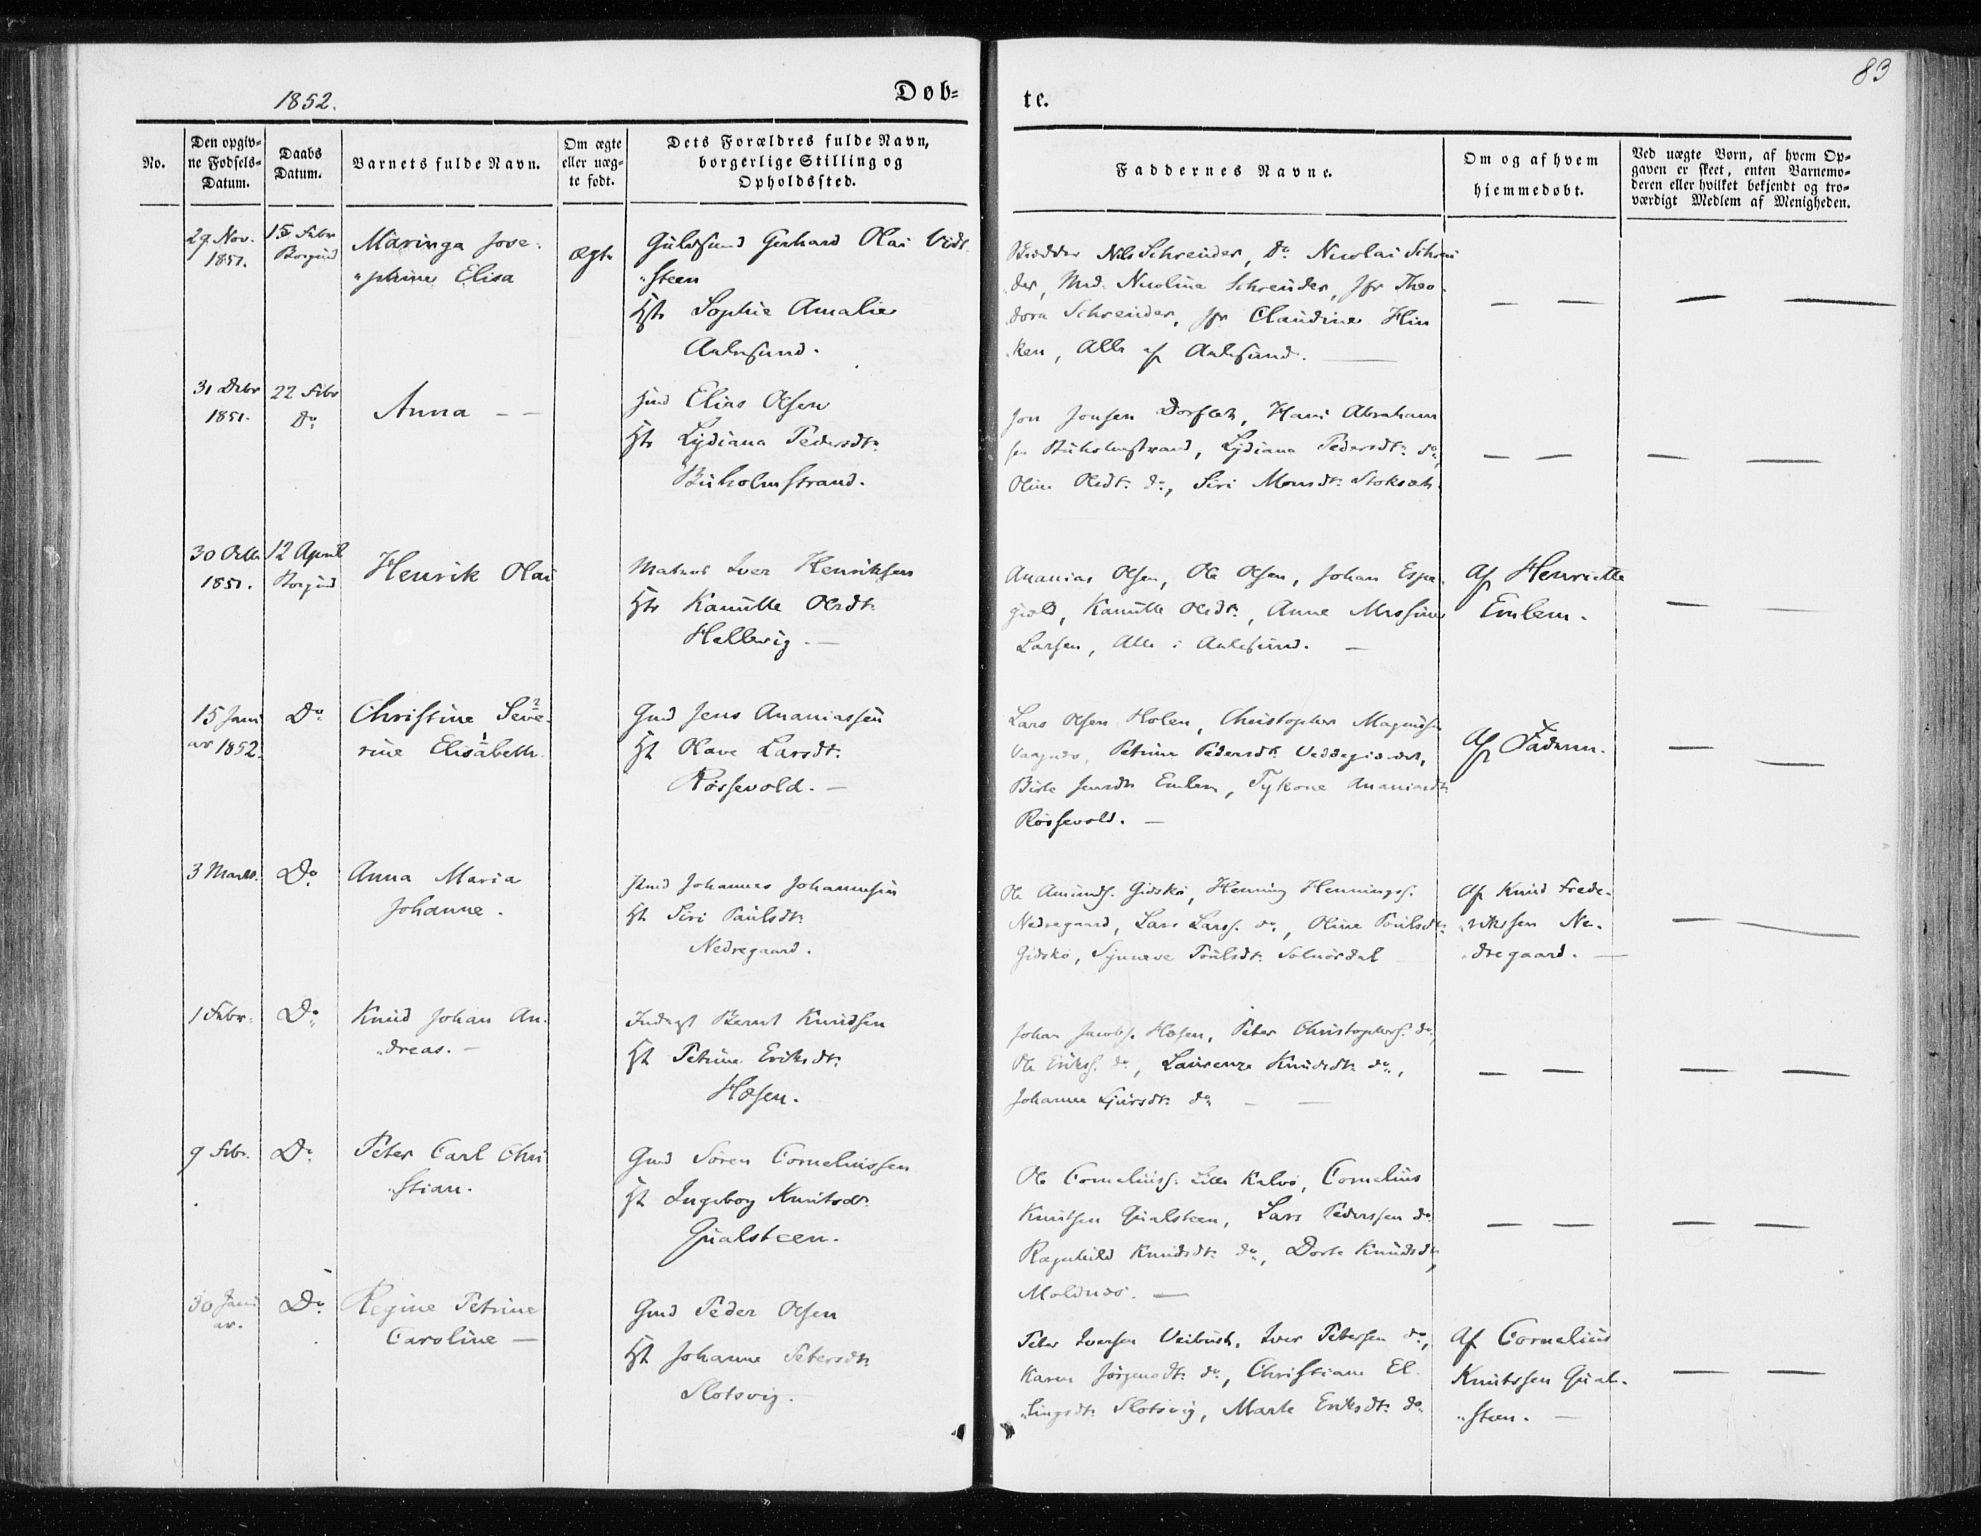 1852.
Døb-
te.
83
No.
Den opgiv-
ne Fødsels-
Datum.
Daabs
Datum.
Barnets fulde Navn.
Om ægte
eller uæg-
te født.
Dets Forældres fulde Navn,
borgerlige Stilling og
Opholdssted.
Faddernes Navne.
Om og af hvem
hjemmedøbt.
Ved uægte Børn, af hvem Op-
gaven er skeet, enten Barnemo-
deren eller hvilket bekjendt og tro-
værdigt Medlem af Menigheden.
29 Nov.
1851.
15 Febr
Borgund
Maringa Jose-
phine Elisa
ægte
Guldsmed Gerhard Olai Vidt
steen
Hst Sophie Amalie
Aalesund.
Nils Schreuder, Do Nicolai Schreu
der, Md. Nicoline Schreuder, Jfr Theo
dora Schreuder, Jfr Claudine Hin
ken, Alle af Aalesund.
31 Debr
1851.
22 Febr
Do
Anna
Hmd Elias Olsen
Hst Lydiana Pedersdtr
Buholmstrand.
Jon Jonsen Hans Abraham
sen Buholmstrand, Lydiana Pedersdtr do,
Oline Olsdtr do, Siri Monsdtr
30 Octbr
1851.
12 April
Borgund
Henrik Olai
Matros Iver Henriksen
Hst Kamille Olsdtr
Hellevig.
Ananias Olsen, Ole Olsen, Johan Espe
giæld, Kamille Olsdtr, Anne
Larsen, Alle i Aalesund.
Af Henriette
Emlem.
15 Janu
ar 1852.
Do
Christine Seve-
rine Elisabeth.
Gmd Jens Ananiassen
Hst Olave Larsdtr
Røssevold.
Lars Olsen Holen, Christopher Magnus
Petrine Pedersdtr
Jensdtr Emlem, Ananiasdtr
Røssevold.
Af Faderen.
3 Marts.
Do
Anna Maria
Johanne.
Johannes Johannesen
Hst Siri Paulsdtr
Nedregaard.
Ole Amunds. Gidskø, Henning Hennings.
Nedregaard, Lars Larss. do, Oline Poulsdtr
Gidskø, Synneve Poulsdtr Solnørdal
Af Knud Frede-
rikssen Ne-
dregaard.
1 Febr.
Do
Knud Johan An-
dreas.
Inderst Bernt Knudsen
Hst Petrine Eriksdtr
Hæsen.
Johan Jacobs. Hæsen, Peter Christophers. do,
Ole Eriks. do, Laurenze Knudsdtr do,
Johanne Sjursdtr do
9 Febr.
Do
Peter Carl Chri
stian.
Gmd Søren Corneliussen
Hst Ingeborg Knutsdr
Gualsteen.
Ole Cornelius. Lille Kalvø, Cornelius
Knutsen Gualsteen, Lars Pederssen do
Ragnhild Knudsdtr do, Dorte Knudsdtr,
Moldnæs.
30 Janu
ar.
Do
Regine Petrine
Caroline
Gmd Peder Olsen
Hst Johanne Petersdtr
Slotsvig.
Peter Iversen Veibust, Iver Petersen do,
Karen Jørgensdtr do, Christiane El
lingsdtr Slotsvig, Marte Eriksdtr do
Af Cornelius
Knutssen Gual-
steen.